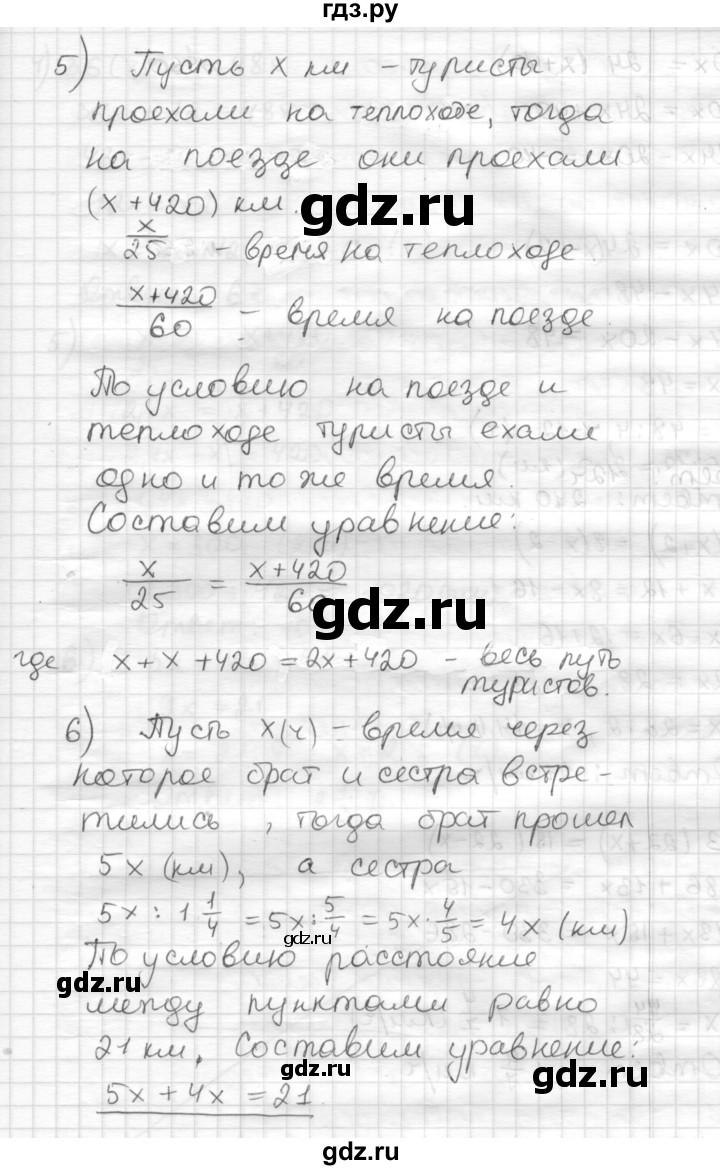 гдз.ру
5) Пусть x км – туристы
проехали на теплоходе, тогда
на поезде они проехали
(x + 420) км.
gdz.ru
x/25 – время на теплоходе.
(x+420)/60 – время на поезде.
По условию на поезде и
теплоходе туристы ехали
одно и то же время.
Составим уравнение:
x/25 = (x+420)/60
gdz.ru
где x + x + 420 = 2x + 420 – весь путь
туристов.
6) Пусть x(ч) – время через
которое брат и сестра встре-
тились, тогда брат прошел
5x (км), а сестра
5x : 1 1/4 = 5x : 5/4 = 5x · 4/5 = 4x (км)
gdz.ru
По условию расстояние
gdz.ru
между пунктами равно
21 км. Составим уравнение:
gdz.ru
5x + 4x = 21
gdz.ru